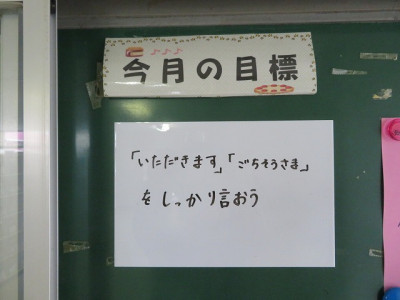 今月の目標
「いただきます」「ごちそうさま」
をしっかり言おう